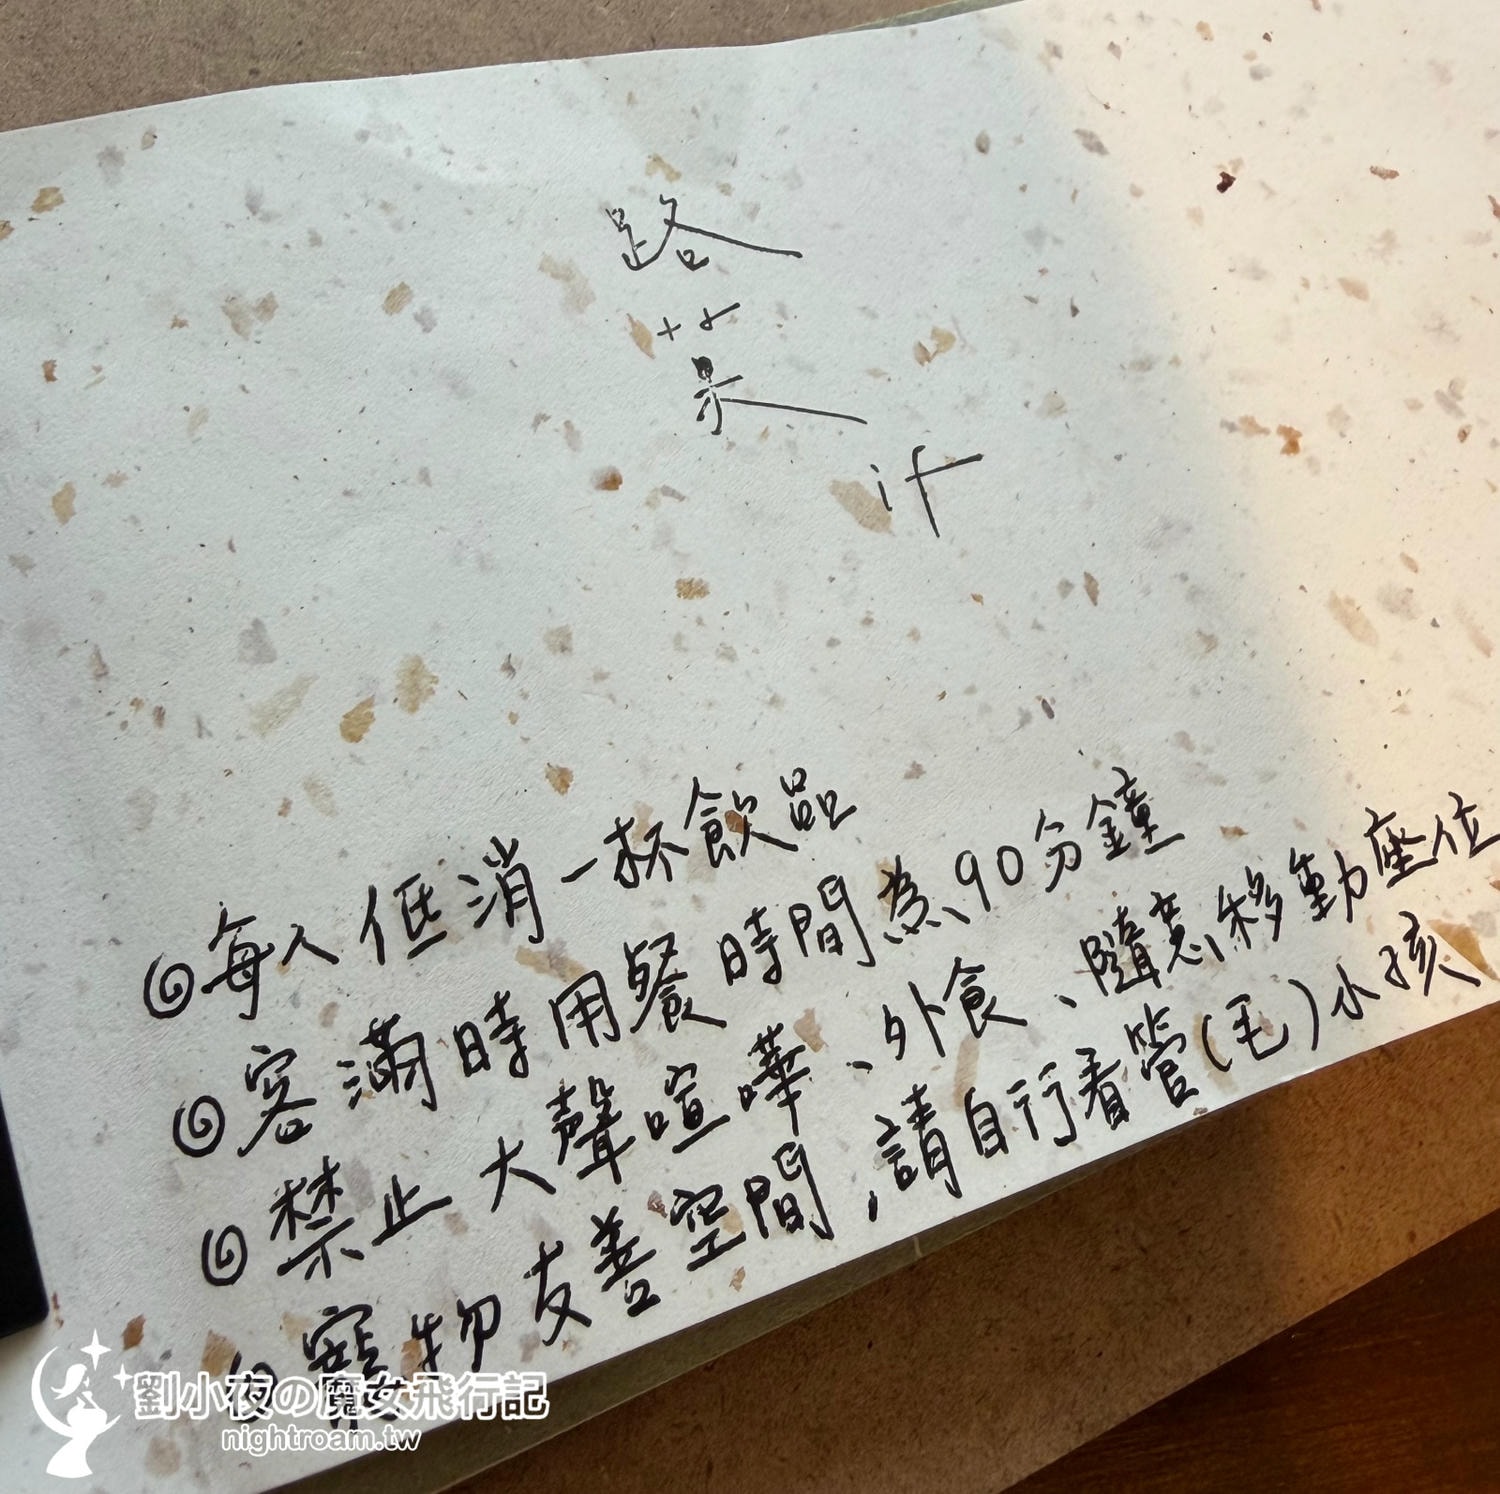 路
菓
if
每人低消一杯飲品
客滿時用餐時間為90分鐘
禁止大聲喧嘩、外食、隨意移動座位
寵物友善空間,請自行看管(毛)小孩
劉小夜の魔女飛行記
nightroam.tw